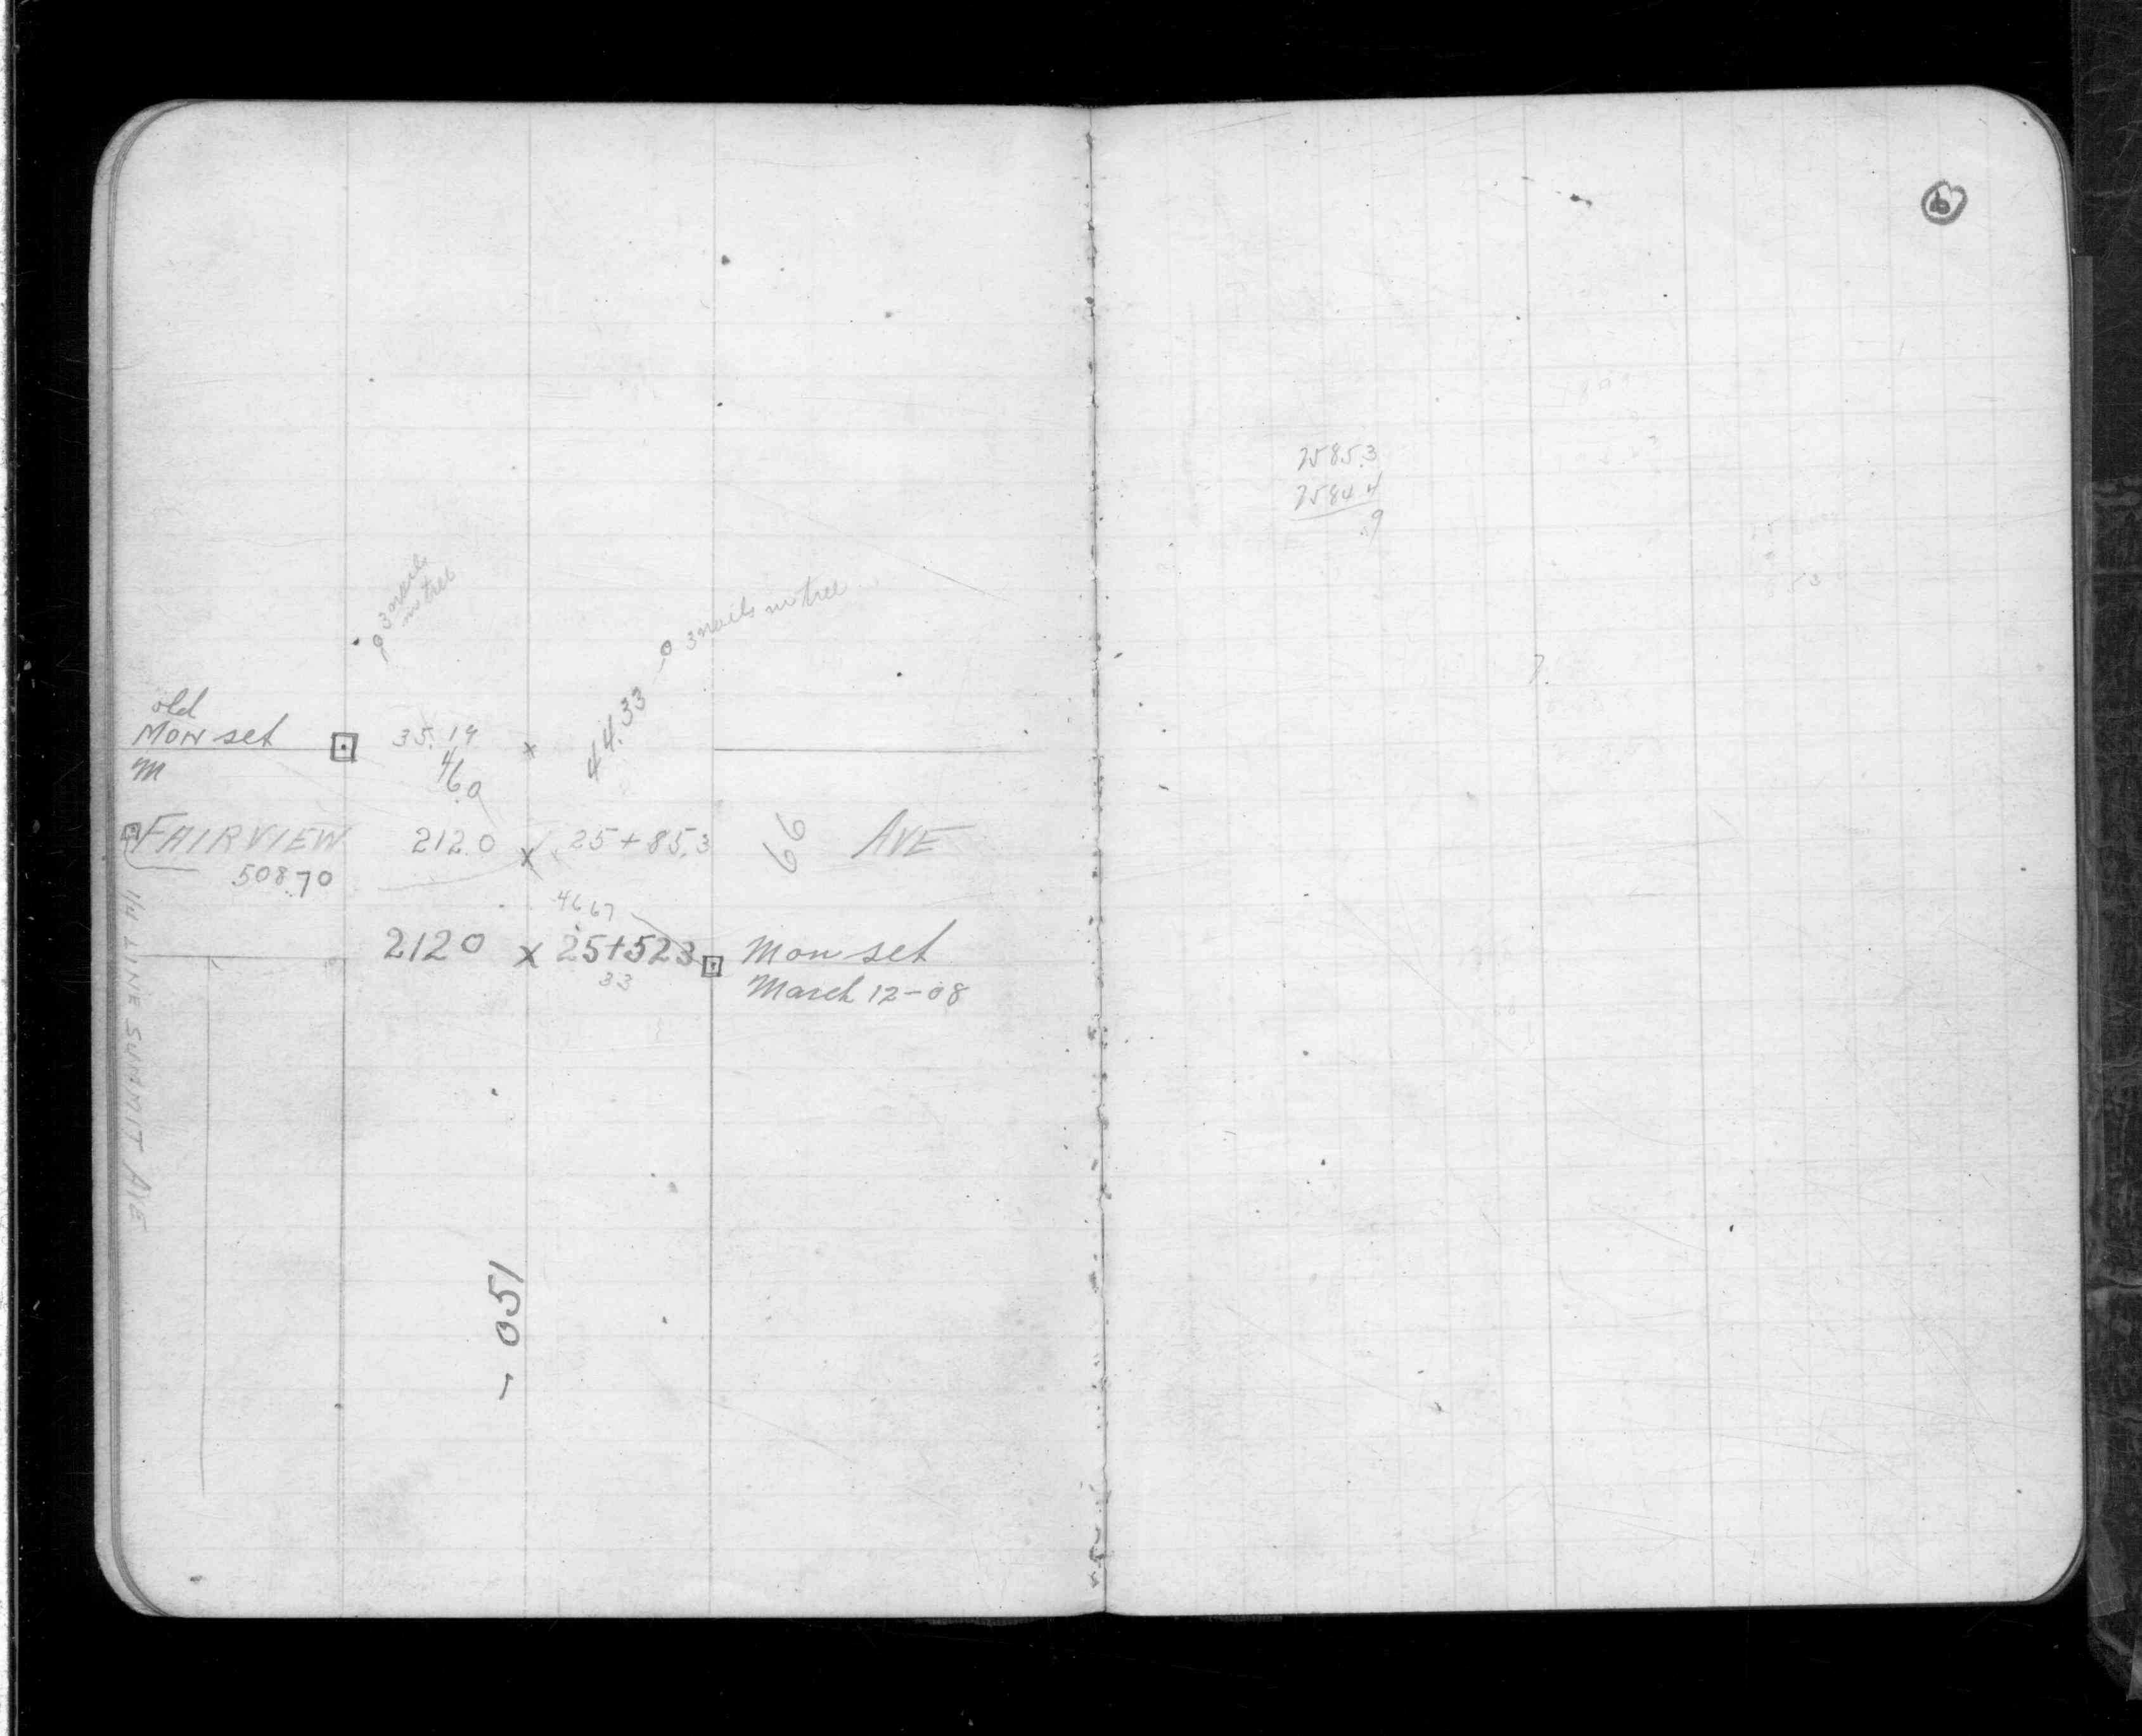 3 nails
in tree
3 nails in tree
44.33
old
Mon set
m
35.19
46.0
FAIRVIEW
212.0
25+85.3
66
AVE
508.70
46.67
2120
25+523
Mon set
33
March 12-08
1/4 LINE SUMMIT AVE
150 -
6
2585.3
2584.4
.9
7.